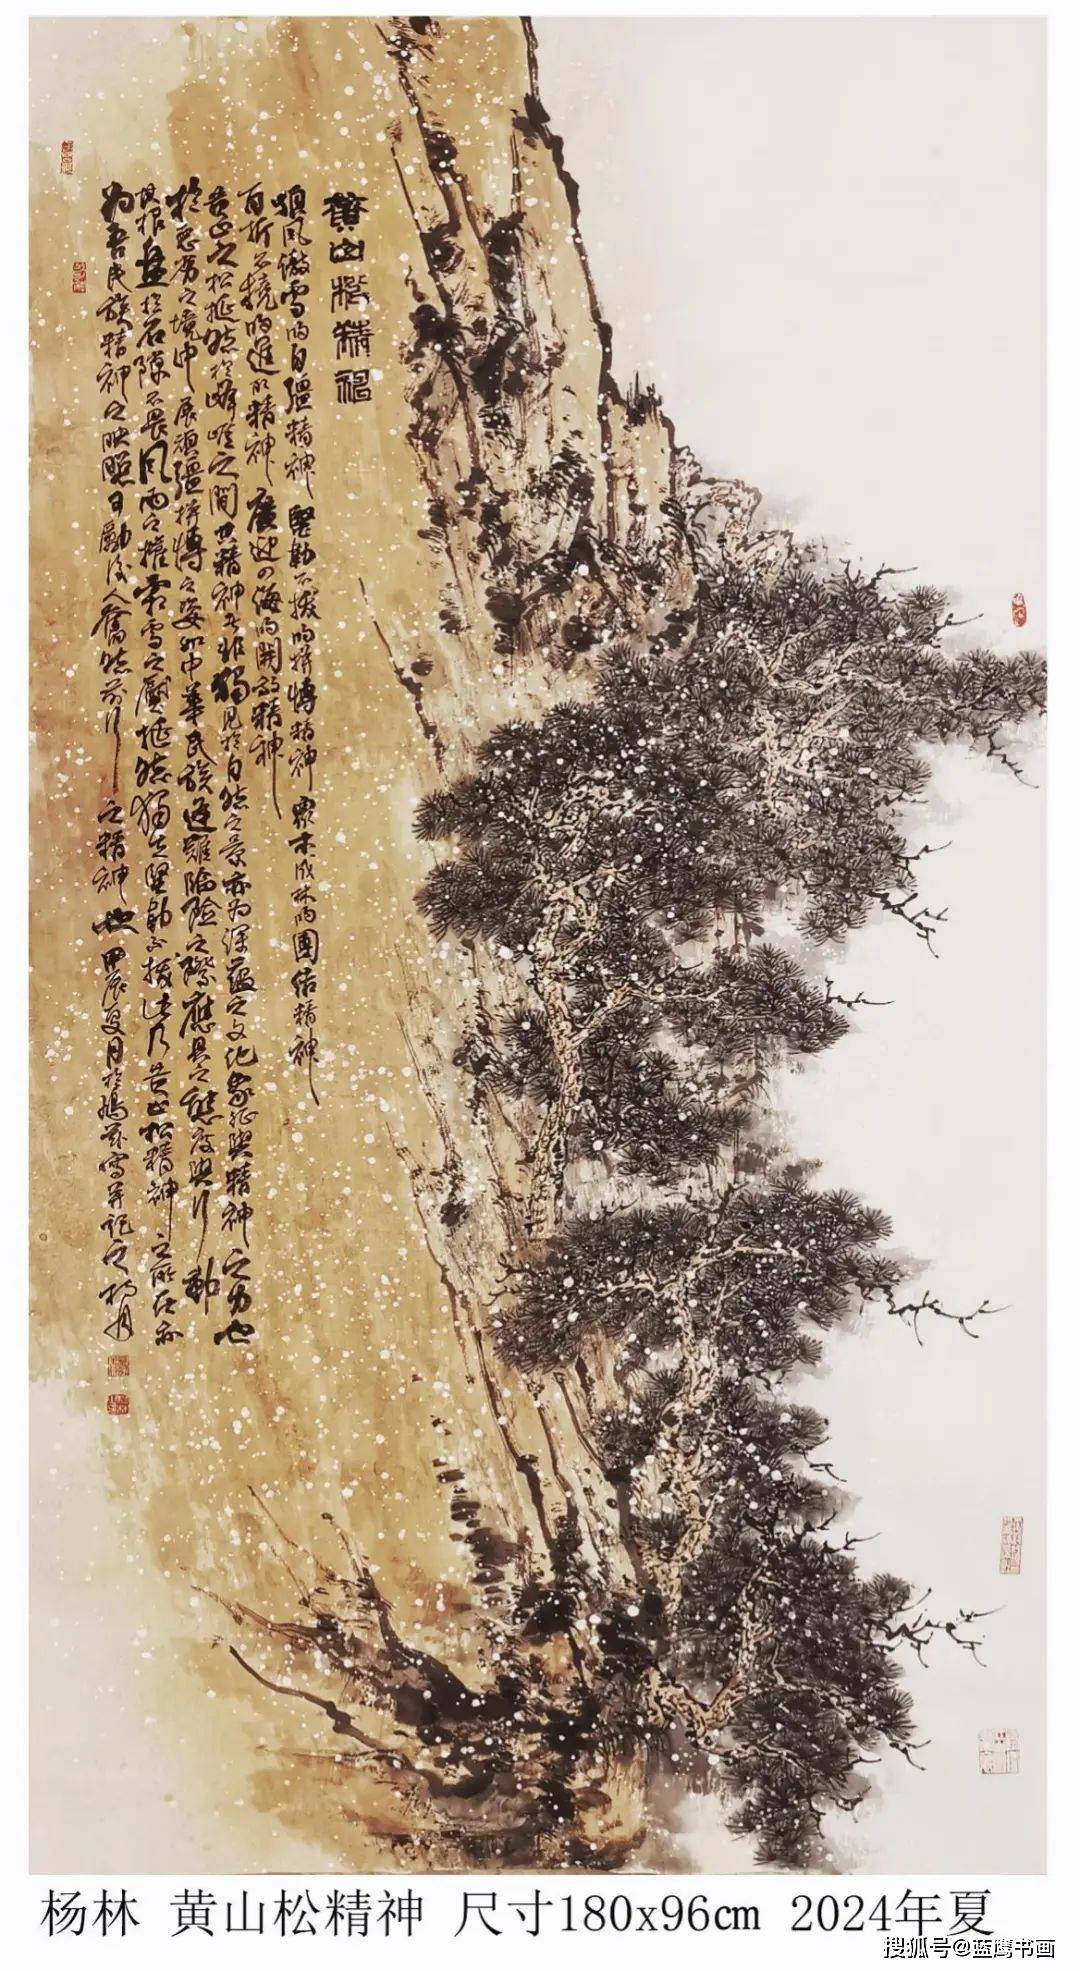 黄山松精神
顶风傲雪的自强精神 坚韧不拔的拼搏精神 众木成林的团结精神
百折不挠的进取精神 广迎四海的开放精神
黄山之松挺然於峰崖之间 其精神者非独见於自然之景亦为深蕴之文化象征与精神之力也
於恶劣之境中展顽强拼搏之姿如中华民族遇难临险之际应具之态度与行动
其根盘於石隙不畏风雨之摧霜雪之压挺然独立坚韧不拔此乃黄山松精神之所在亦
为吾民族精神之映照 日励后人奋然前行之精神也 甲辰夏月於鸠兹写并记之 杨林
杨林 黄山松精神 尺寸180x96cm 2024年夏
搜狐号@蓝鹰书画